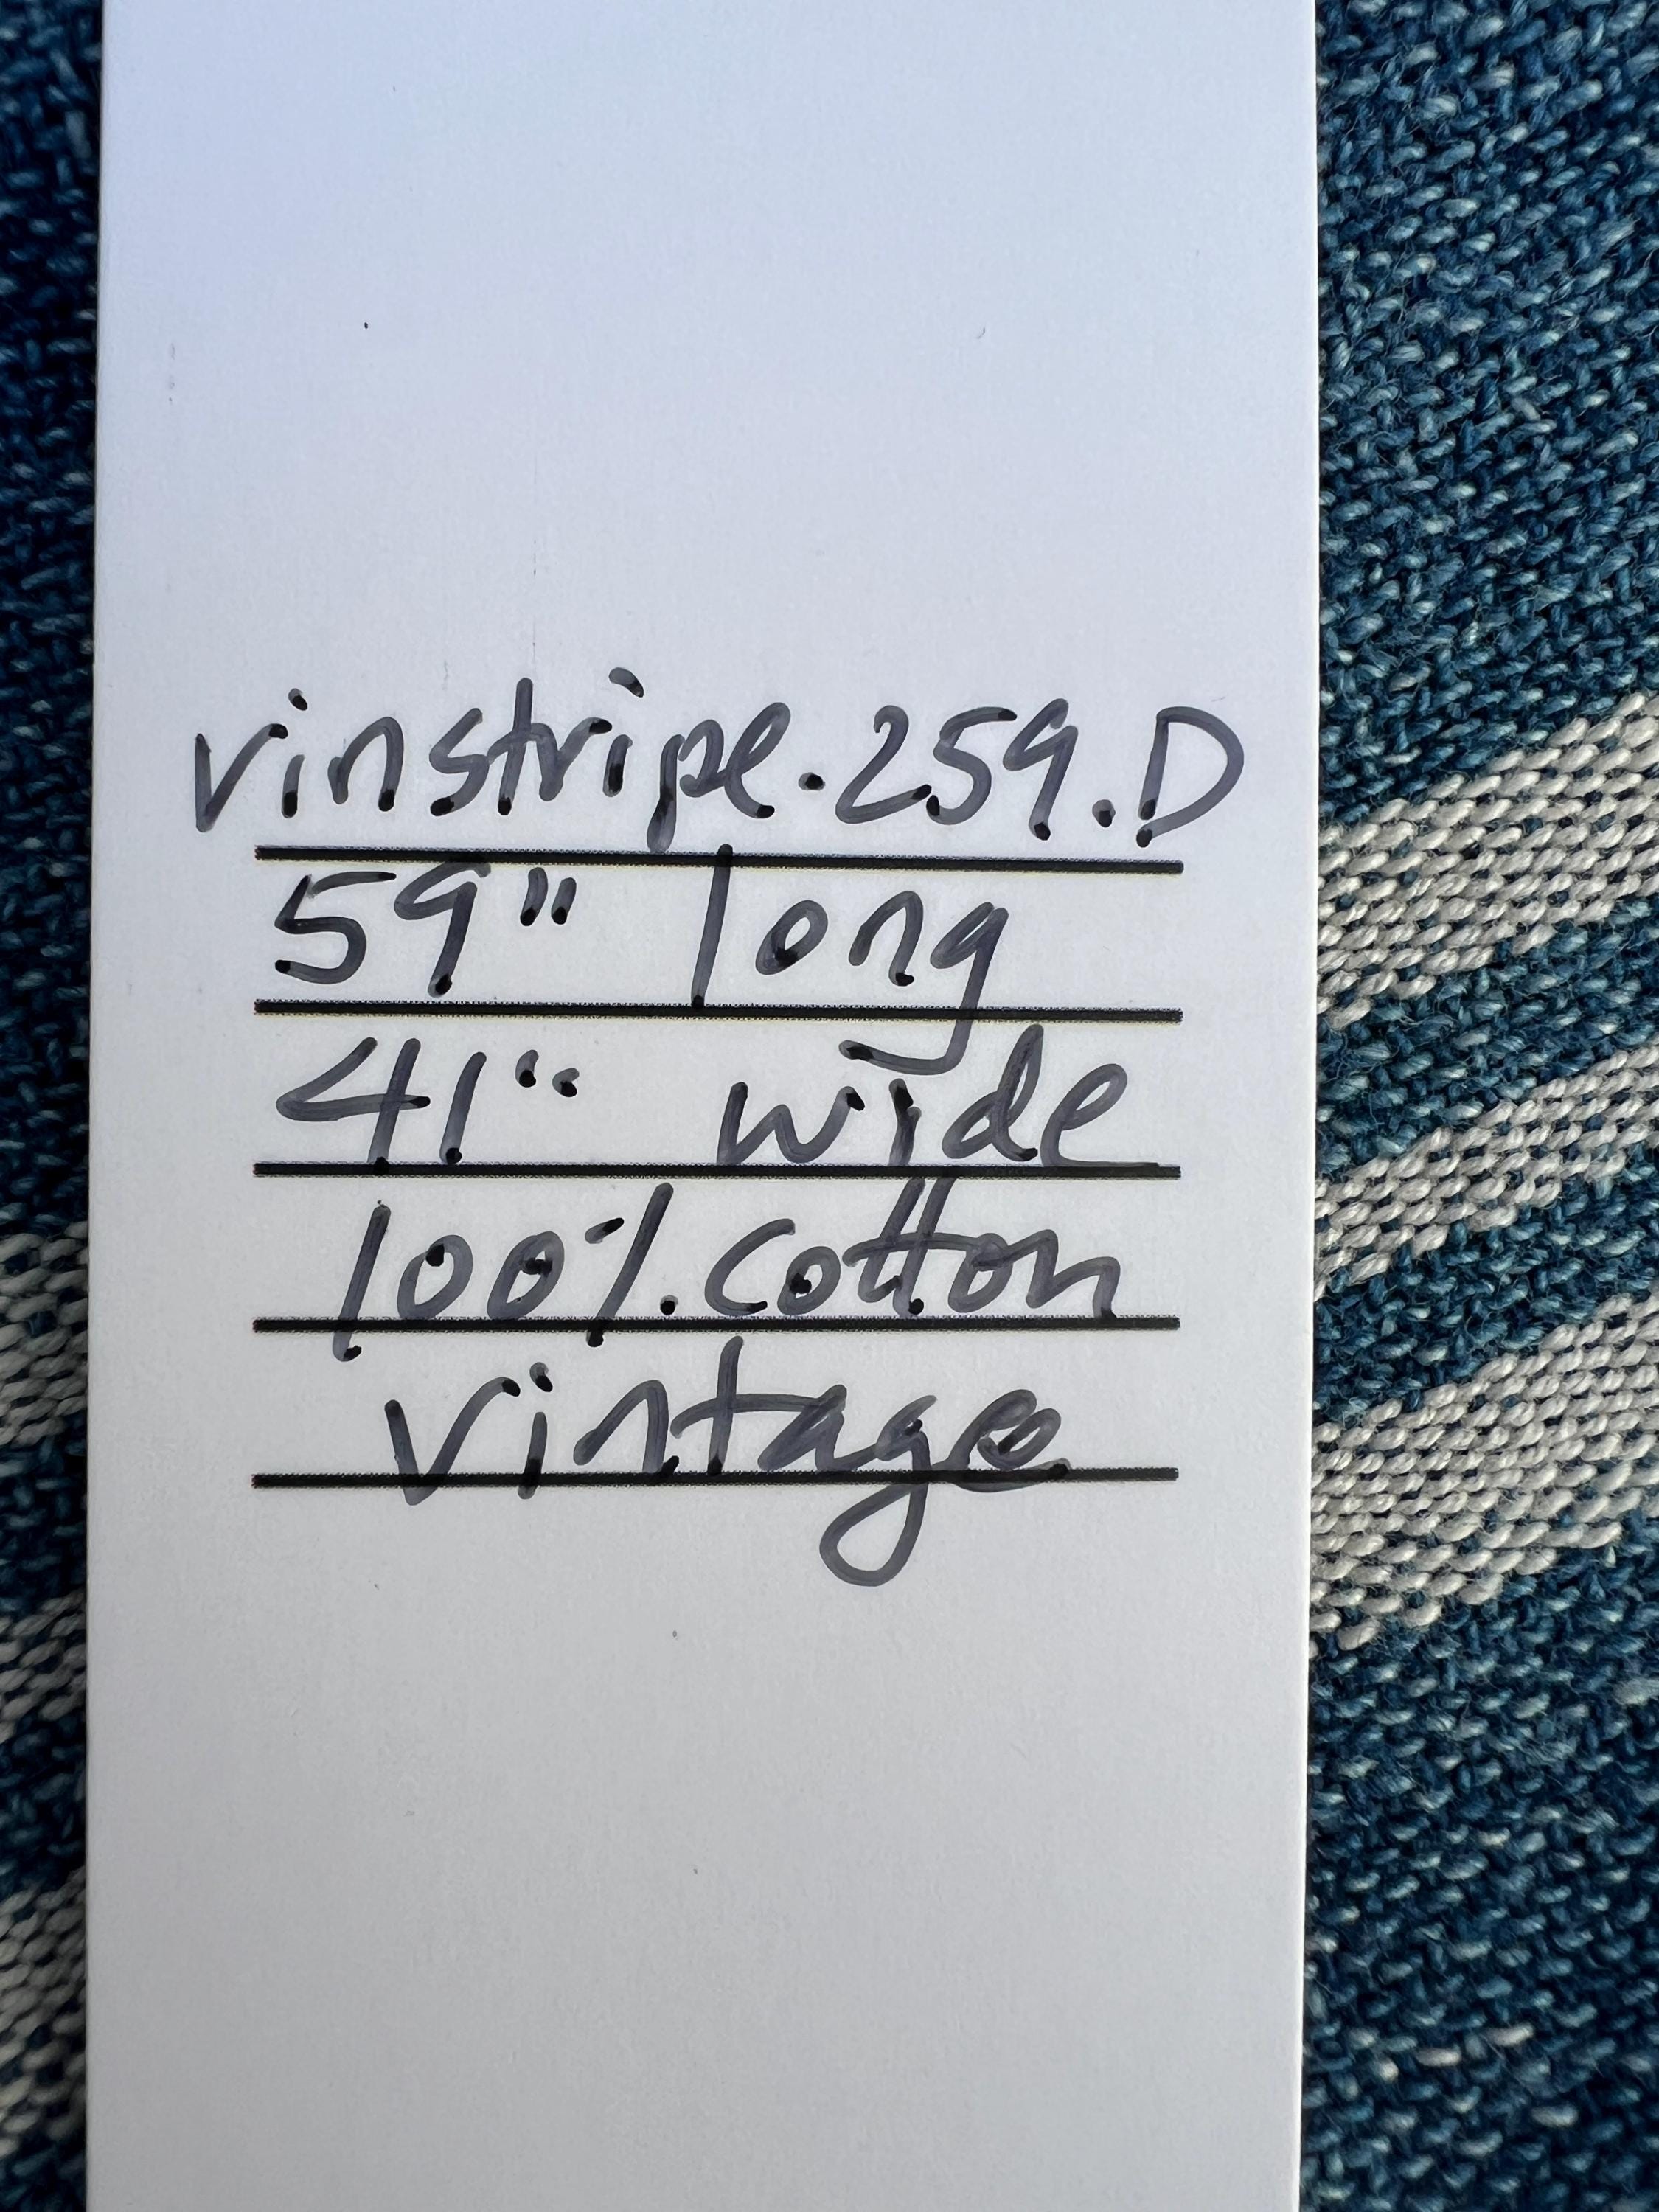 vinstripe.259.D
59" long
41" wide
100%.cotton
vintage